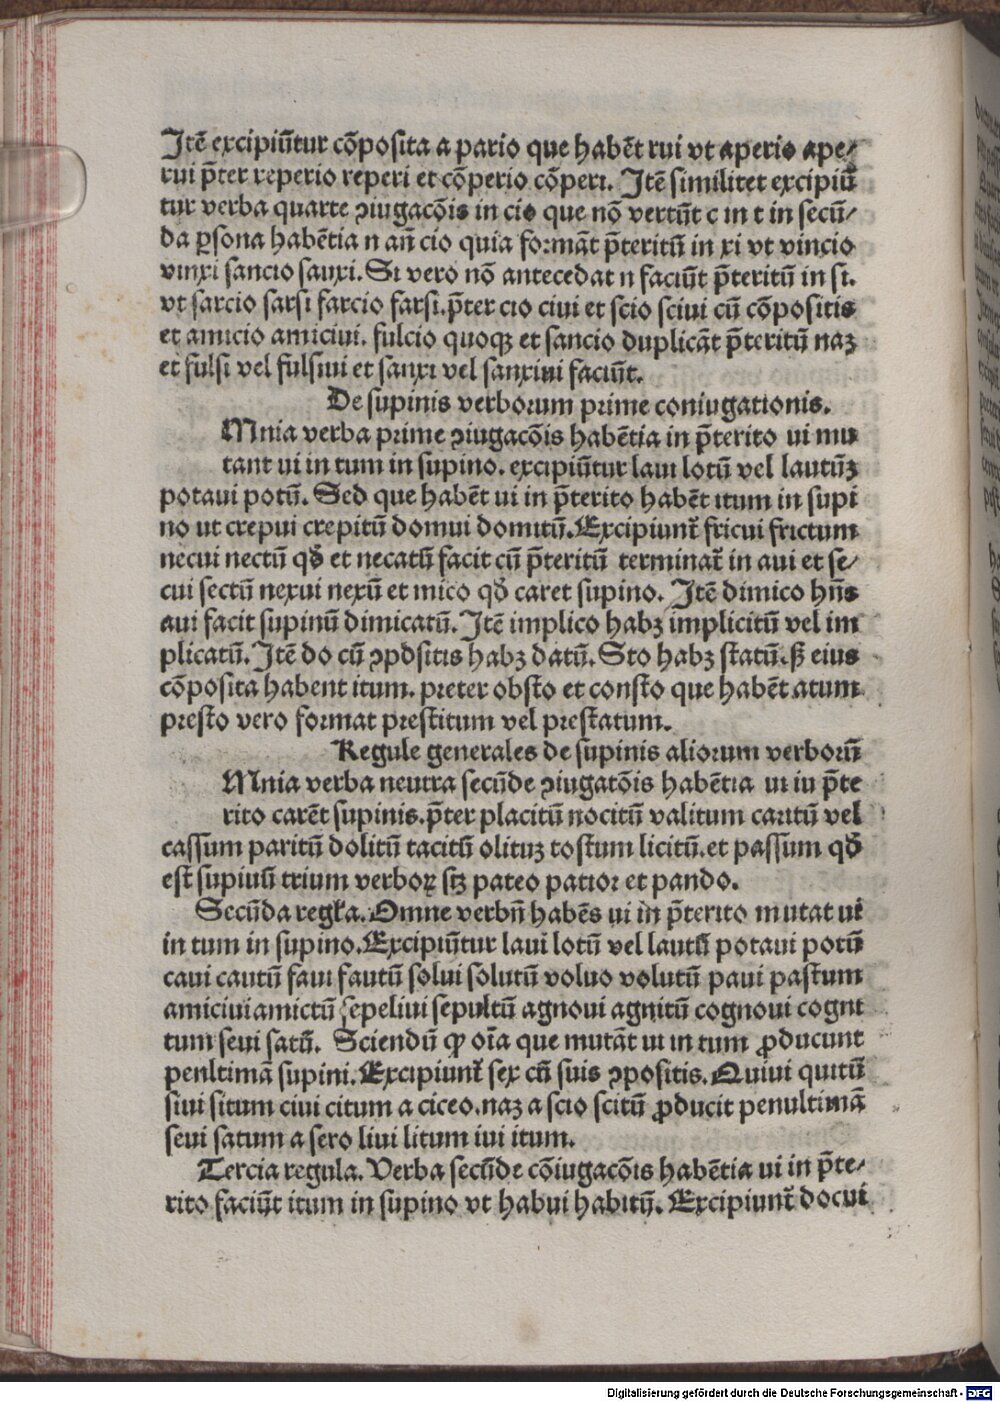 Itē excipiūtur cōposita a pario que habēt rui vt aperio ape⸗
rui p̄ter reperio reperi et cōperio cōperi. Itē similiter excipiū
tur verba quarte ꝯiugacōis in cio que nō vertūt c in t in secū⸗
da ꝑsona habētia n an̄ cio quia formāt p̄teritū in xi vt vincio
vinxi sancio sanxi. Si vero nō antecedat n faciūt p̄teritū in si.
vt sarcio sarsi farcio farsi. p̄ter cio ciui et scio sciui cū cōpositis
et amicio amiciui. fulcio quoqꝫ et sancio duplicāt p̄teritū naꝫ
et fulsi vel fulsiui et sanxi vel sanxini faciūt.
De supinis verborum prime coniugationis.
Mnia verba prime ꝯiugacōis habētia in p̄terito ui mu
tant ui in tum in supino. excipiūtur laui lotū vel lautūꝫ
potaui potū. Sed que habēt ui in p̄terito habēt itum in supi
no ut crepui crepitū domui domitū. Excipiunt᷑ fricui frictum
necui nectū qd̄ et necatū facit cū p̄teritū terminat᷑ in aui et se⸗
cui sectū nexui nexū et mico qd̄ caret supino. Itē dimico hn̄s
aui facit supinū dimicatū. Itē implico habꝫ implicitū vel im
plicatū. Itē do cū ꝯpositis habꝫ datū. Sto habꝫ statū. ß eius
cōposita habent itum. preter obsto et consto que habēt atum
presto vero format prestitum vel prestatum.
Regule generales de supinis aliorum verborū
Mnia verba neutra secūde ꝯiugatōis habētia ui in p̄te
rito carēt supinis. p̄ter placitū nocitū valitum cautū vel
cassum paritū dolitū tacitū olituꝫ tostum licitū. et passum qd̄
est supiuū trium verboꝝ sꝫ pateo patior et pando.
Secūda regl̄a. Omne verbū habēs ui in p̄terito mutat ui
in tum in supino. Excipiūtur laui lotū vel lautū potaui potū
caui cautū faui fautū solui solutū voluo volutū paui pastum
amiciui amictū sepeliui sepultū agnoui agnitū cognoui cogni
tum seui satū. Sciendū ꝙ oīa que mutāt ui in tum ꝓducunt
penltimā supini. Excipiunt᷑ sex cū suis ꝯpositis. Quiui quitū
siui situm ciui citum a cieo. naꝫ a scio scitū ꝓducit penultimā
seui satum a sero liui litum iui itum.
Tercia regula. Verba secūde cōiugacōis habētia ui in p̄te⸗
rito faciūt itum in supino vt habui habitū. Excipiunt᷑ docui
Digitalisierung gefördert durch die Deutsche Forschungsgemeinschaft - DFG